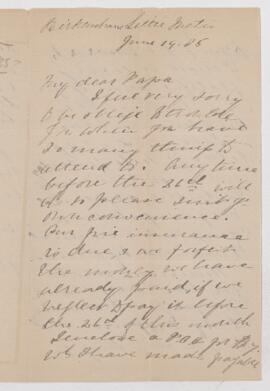 June 19. 85
My dear Papa
I feel very sorry
to
for when you have
so many things to
attend to. Any time
before the 26th will
do so please suit your
own convenience.
Our fire insurance
is due, & we forfeit
the money we have
already paid if we
neglect to pay it before
the 26th of this month
I enclose a P.O.O. for
wh I have made payable